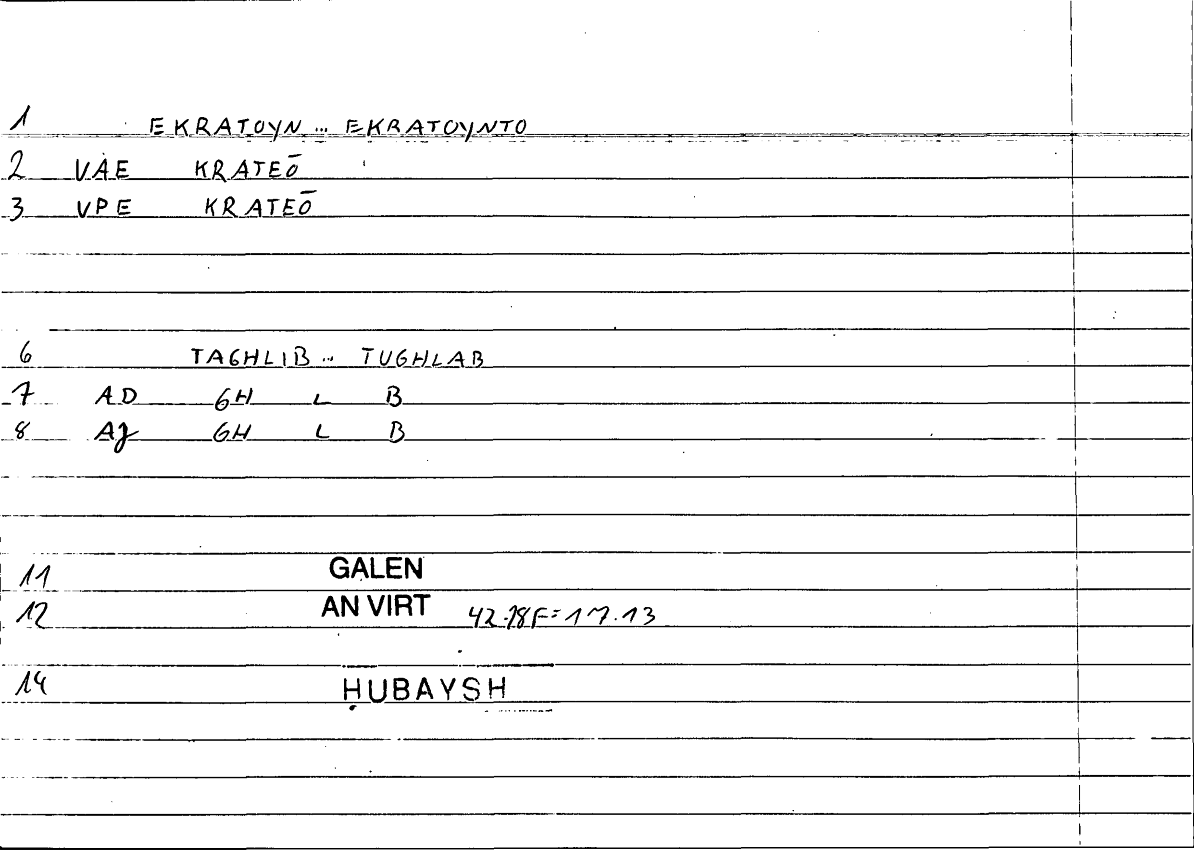 1 EKRATOYN ... EKRATOYNTO
2 VAE KRATEŌ
3 VPE KRATEŌ
6 TAGHLIB ... TUGHLAB
7 AD GH L B
8 AJ GH L B
11 GALEN
12 AN VIRT 42.18F=17.13
14 ḤUBAYSH